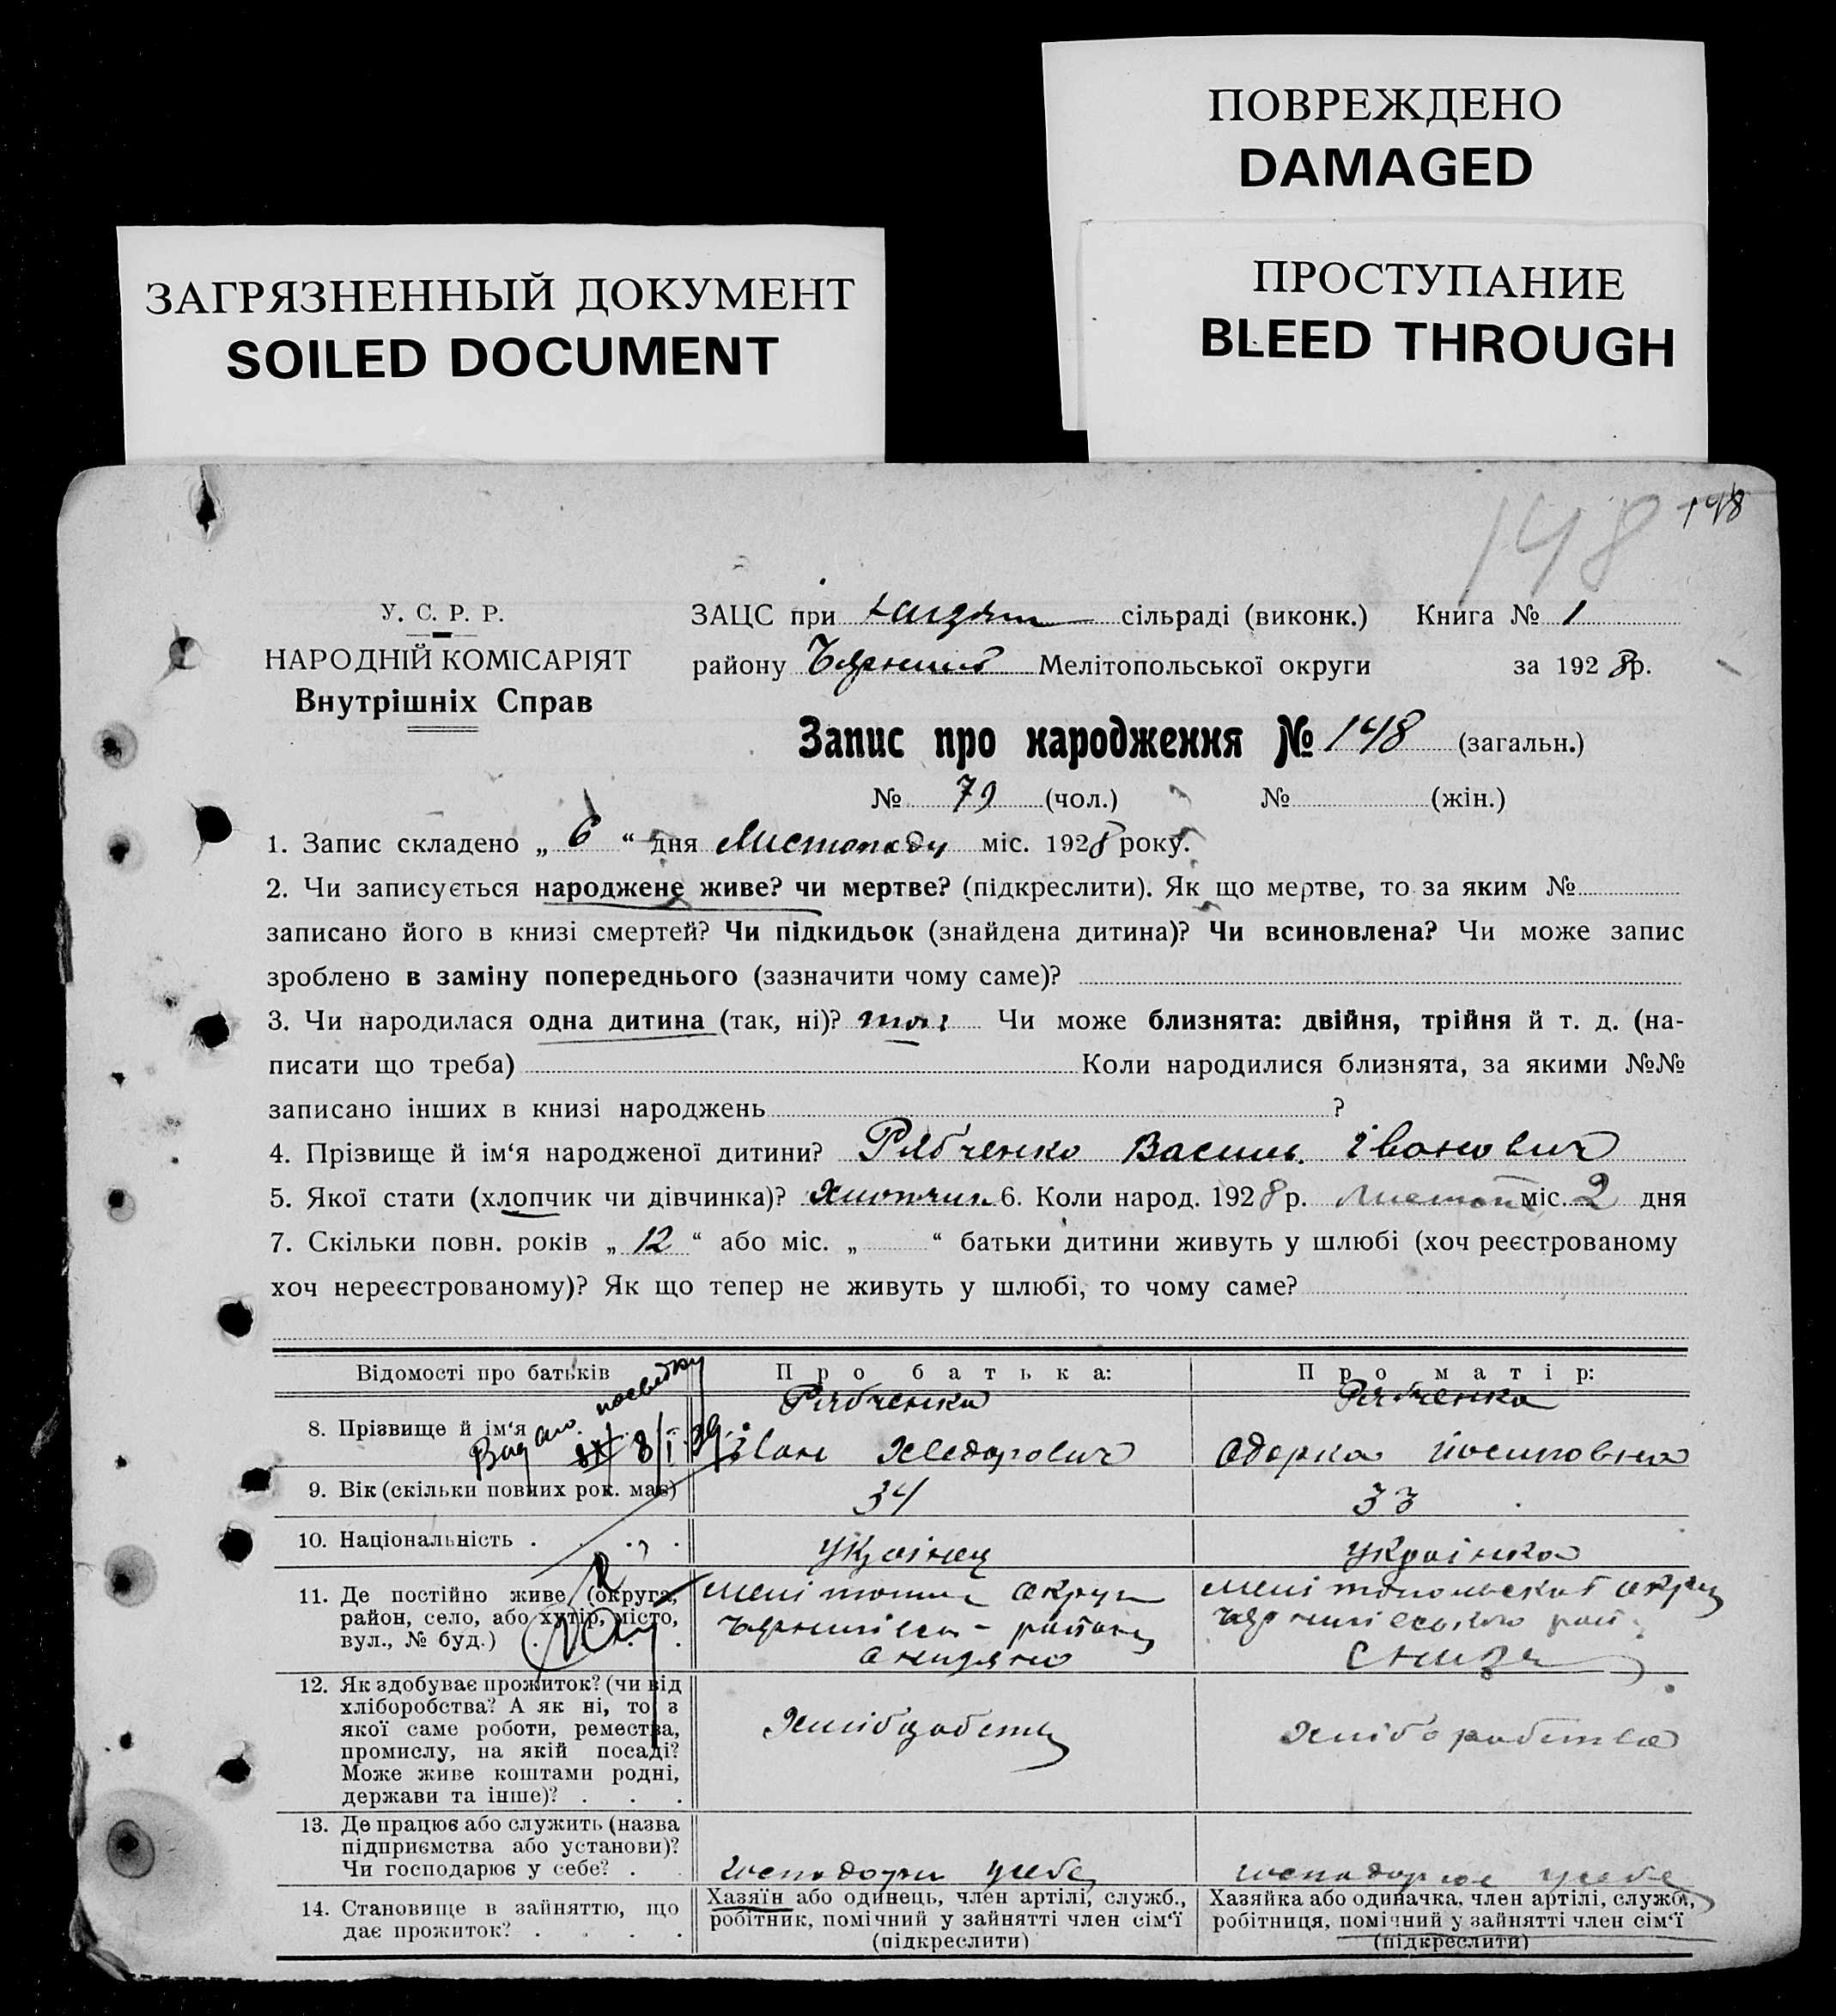 ПОВРЕЖДЕНО
DAMAGED
ПРОСТУПАНИЕ
BLEED THROUGH
ЗАГРЯЗНЕННЫЙ ДОКУМЕНТ
SOILED DOCUMENT
148 148
У. С. Р. Р.
НАРОДНІЙ КОМІСАРІЯТ
Внутрішніх Справ
ЗАЦС при сільраді (виконк.) Книга № 1
району Мелітопольської округи за 1928 р.
Запис про народження № 148 (загальн.)
№ 79 (чол.) № (жін.)
1. Запис складено „ 6 “ дня Листопаду міс. 1928 року.
2. Чи записується народжене живе? чи мертве? (підкреслити). Як що мертве, то за яким №
записано його в книзі смертей? Чи підкидьок (знайдена дитина)? Чи всиновлена? Чи може запис
зроблено в заміну попереднього (зазначити чому саме)?
3. Чи народилася одна дитина (так, ні)? так Чи може близнята: двійня, трійня й т. д. (на-
писати що треба) Коли народилися близнята, за якими №№
записано інших в книзі народжень ?
4. Прізвище й ім‘я народженої дитини? Рябченко Василь Іванович
5. Якої стати (хлопчик чи дівчинка)? Хлопчик 6. Коли народ. 1928 р. Листоп міс. 2 дня
7. Скільки повн. років „ 12 “ або міс. „ “ батьки дитини живуть у шлюбі (хоч реєстрованому
хоч нереєстрованому)? Як що тепер не живуть у шлюбі, то чому саме?
Відомості про батьків Про батька: Про матір:
8. Прізвище й ім‘я
Видано посвідку
8/I 29
Рябченко
Іван Хведорович
Рябченко
Одарка Йосиповна
9. Вік (скільки повних рок. має) 34 33
10. Національність українец українка
11. Де постійно живе (округа,
район, село, або хутір, місто,
вул., № буд.)
округи
району
Мелітопольскої округ
12. Як здобуває прожиток? (чи від
хліборобства? А як ні, то з
якої саме роботи, ремества,
промислу, на якій посаді?
Може живе коштами родні,
держави та інше)?
Хліборобства
13. Де працює або служить (назва
підприємства або установи)?
Чи господарює у себе?
господарює у себе
14. Становище в зайняттю, що
дає прожиток?
Хазяїн або одинець, член артілі, служб.,
робітник, помічний у зайнятті член сім‘ї
(підкреслити)
Хазяйка або одиначка, член артілі, служб.,
робітниця, помічний у зайнятті член сім‘ї
(підкреслити)